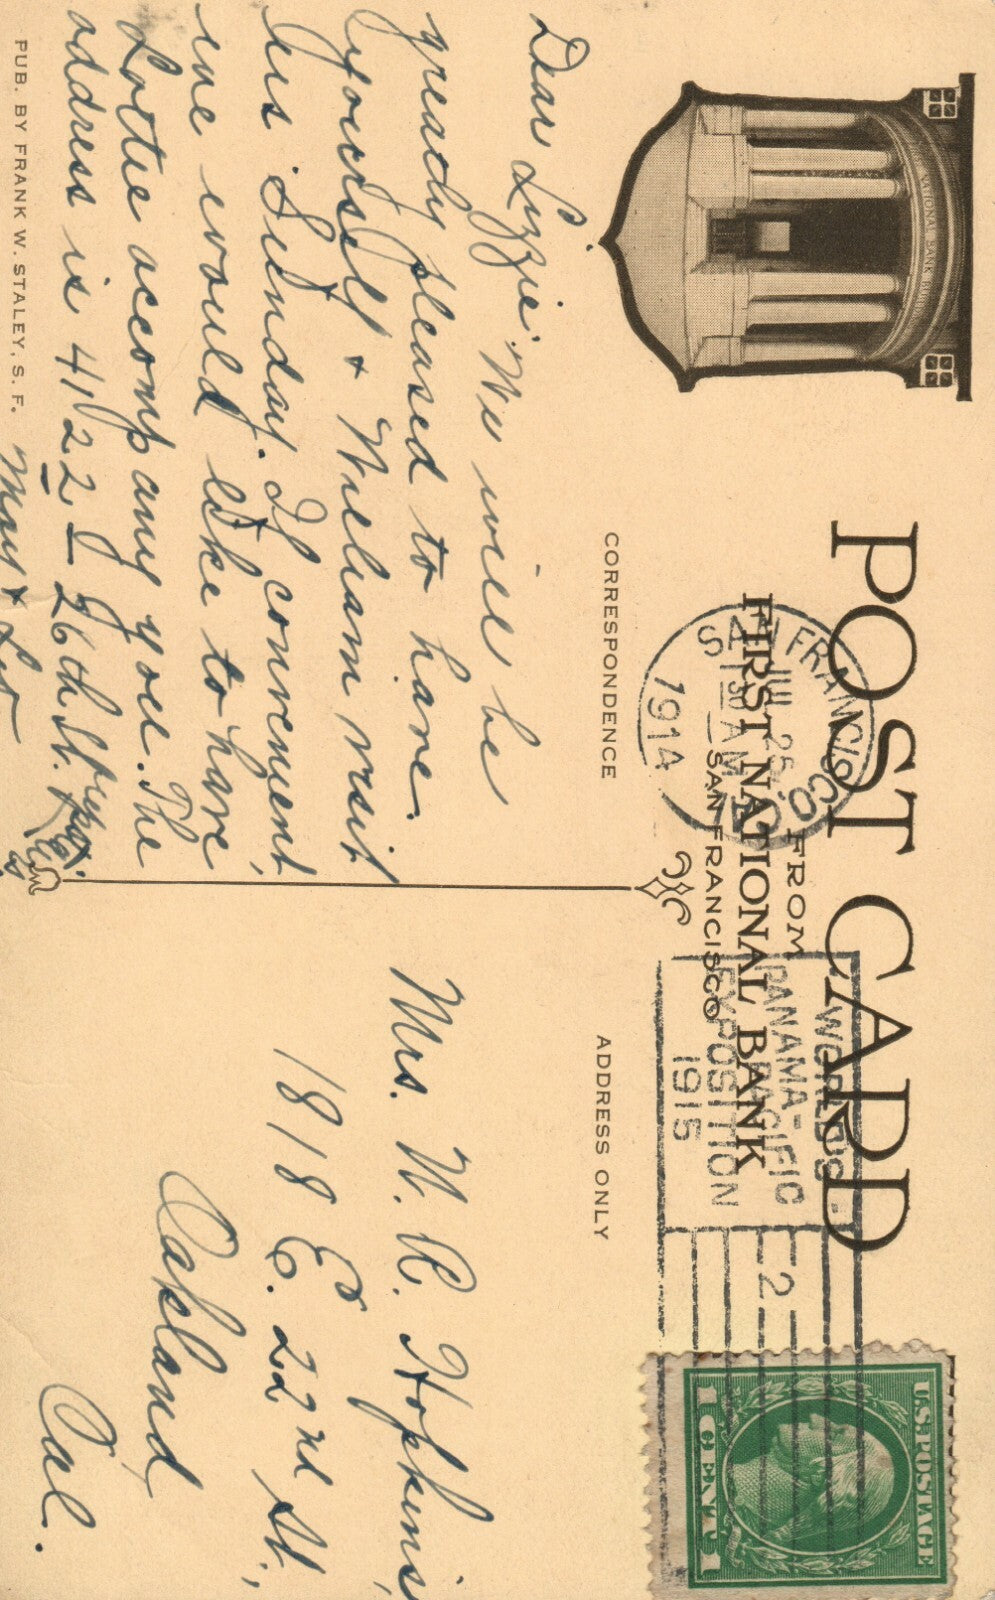 POST CARD
FROM
FIRST NATIONAL BANK
SAN FRANCISCO
FIRST NATIONAL BANK BUILDING
SAN FRANCISCO
JUL 25
1914
WORLDS
PANAMA-PACIFIC
EXPOSITION
1915
2
U.S. POSTAGE
1 CENT 1
CORRESPONDENCE
Dear Lizzie We will be
greatly pleased to have
yourself & William visit
us Sunday. If convenient
we would like to have
Lottie accompany you. The
address is 4122 - 26th St.
May & Leo
ADDRESS ONLY
Mrs. W. R. Hopkins,
1818 E. 22nd St.,
Oakland
Cal.
PUB. BY FRANK W. STALEY, S. F.